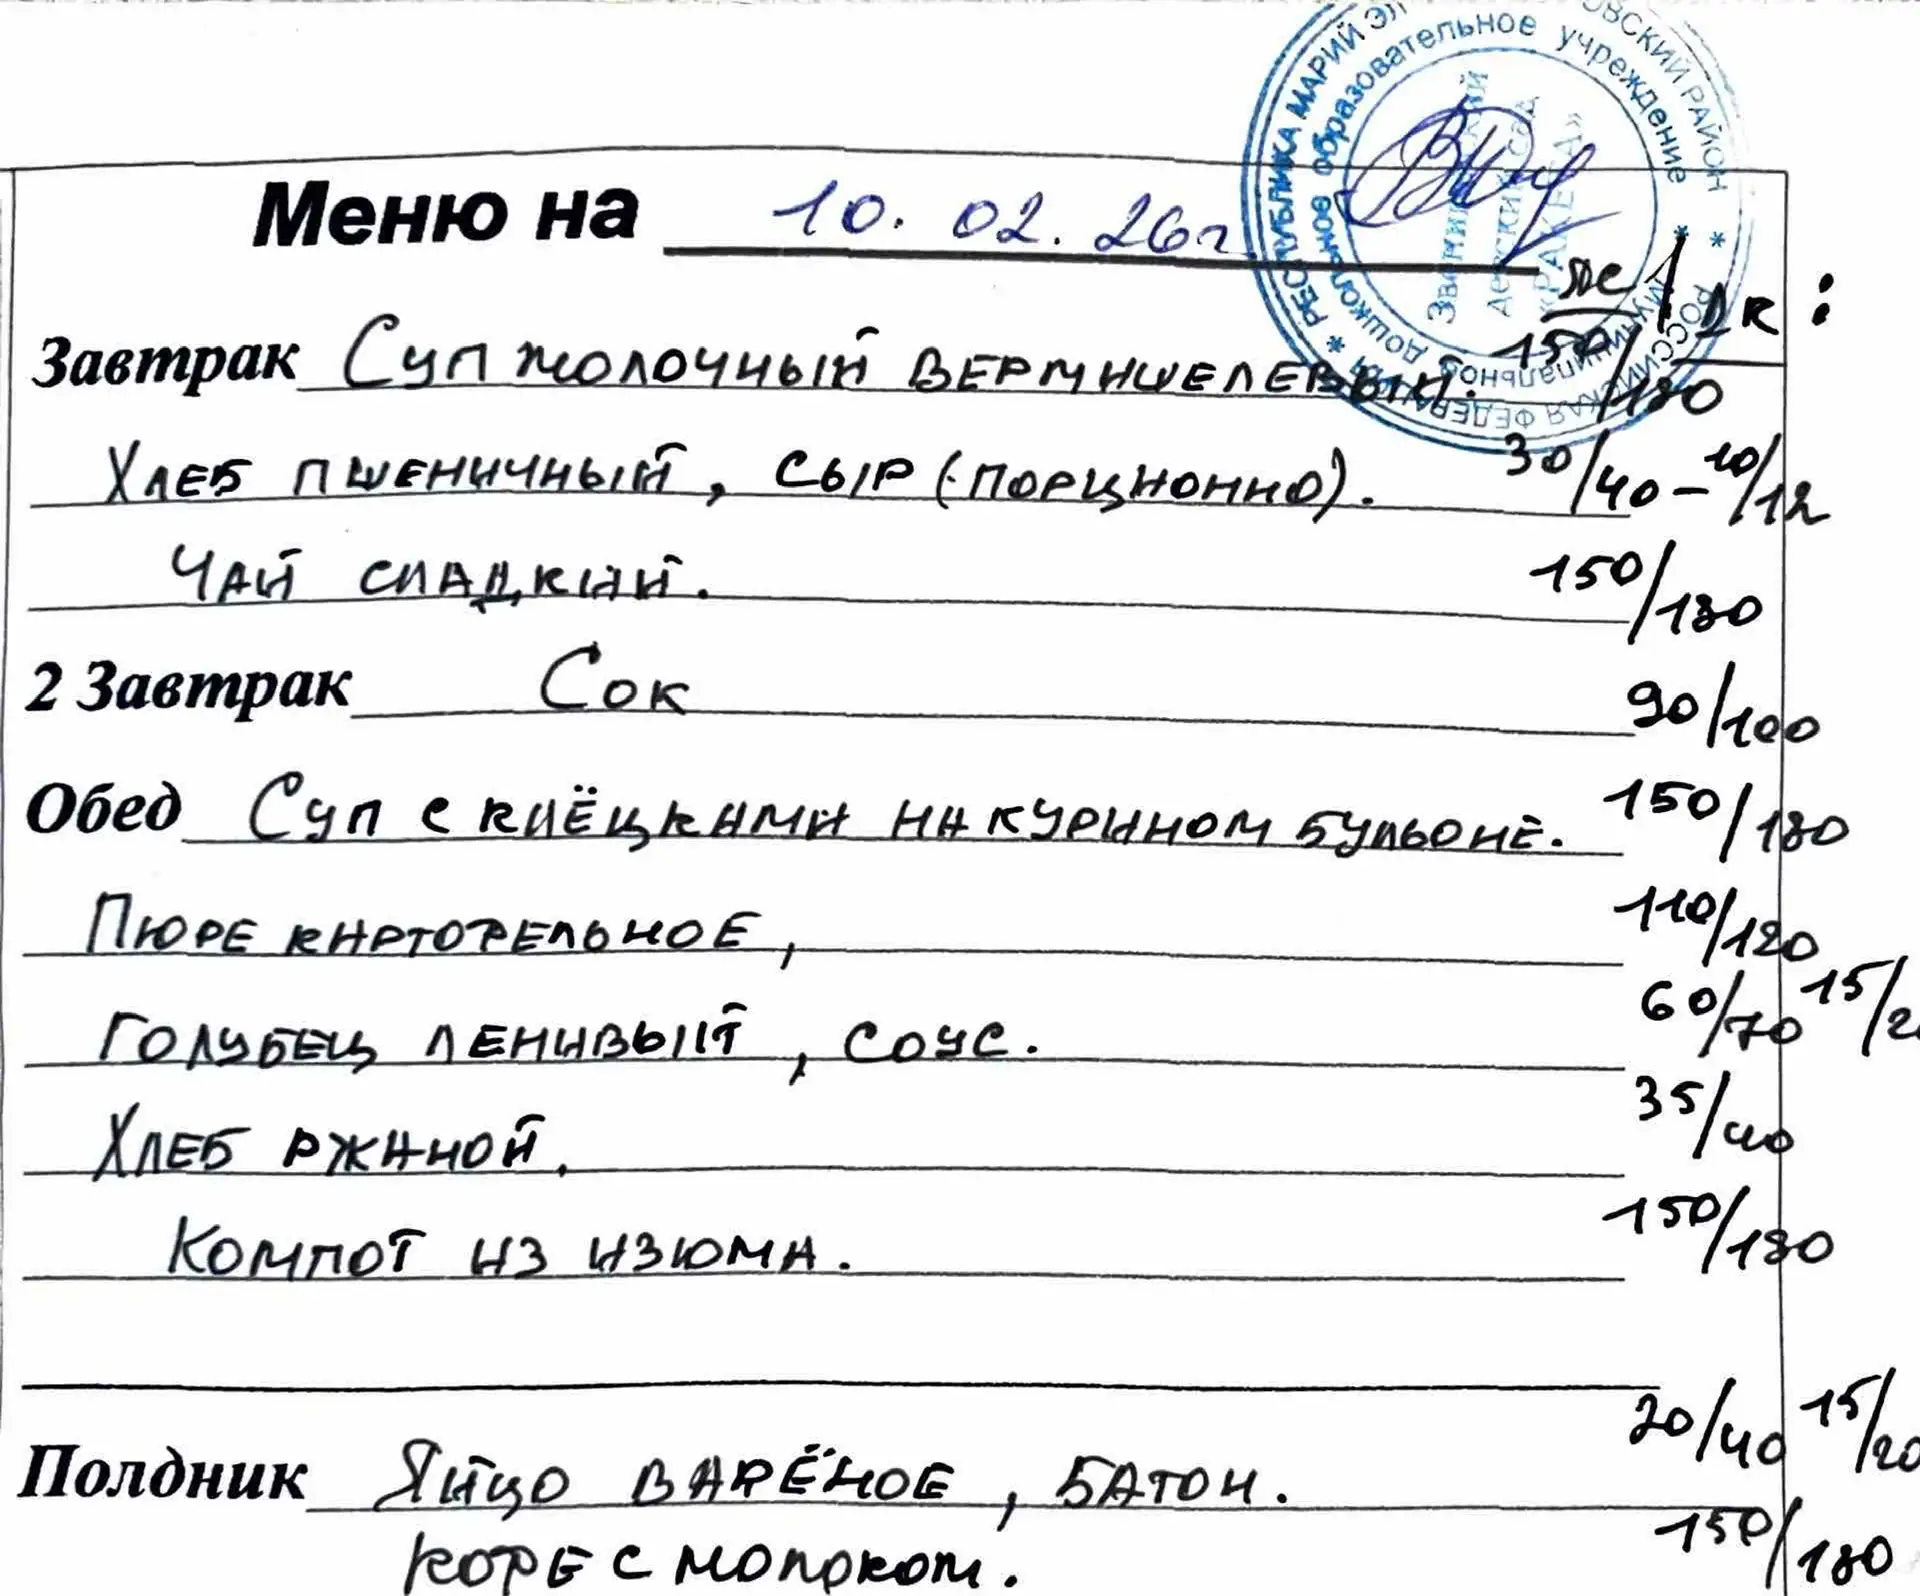 РЕСПУБЛИКА МАРИЙ ЭЛ
ОВСКИЙ РАЙОН
РОССИЙСКАЯ ФЕДЕРАЦИЯ
дошкольное образовательное учреждение
детский сад
«РАКЕТА»
Меню на 10.02.26г
ЯС / ДК:
Завтрак Суп молочный вермишелевый. 150/180
Хлеб пшеничный, сыр (порционно). 30/40 – 10/12
Чай сладкий. 150/180
2 Завтрак Сок 90/100
Обед Суп с клёцками на курином бульоне. 150/180
Пюре картофельное, 110/120
Голубец ленивый, соус. 60/70 15/20
Хлеб ржаной. 35/40
Компот из изюма. 150/180
Полдник Яйцо варёное, батон. 20/40 15/20
Кофе с молоком. 150/180